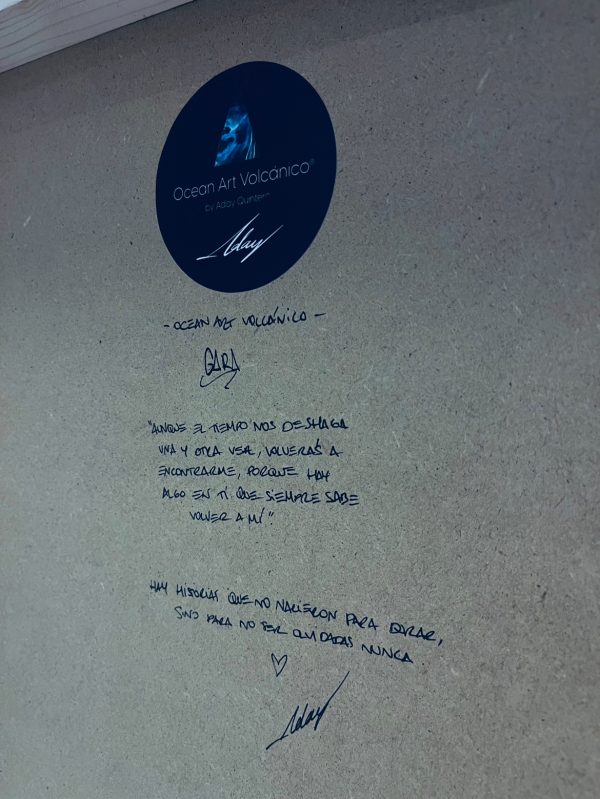 Ocean Art Volcánico®
by Aday Quintero
Aday
- OCEAN ART VOLCÁNICO -
GARA
"AUNQUE EL TIEMPO NOS DESHAGA
UNA Y OTRA VEZ, VOLVERÁS A
ENCONTRARME, PORQUE HAY
ALGO EN TÍ QUE SIEMPRE SABE
VOLVER A MÍ"
HAY HISTORIAS QUE NO NACIERON PARA DURAR,
SINO PARA NO SER OLVIDADAS NUNCA
Aday